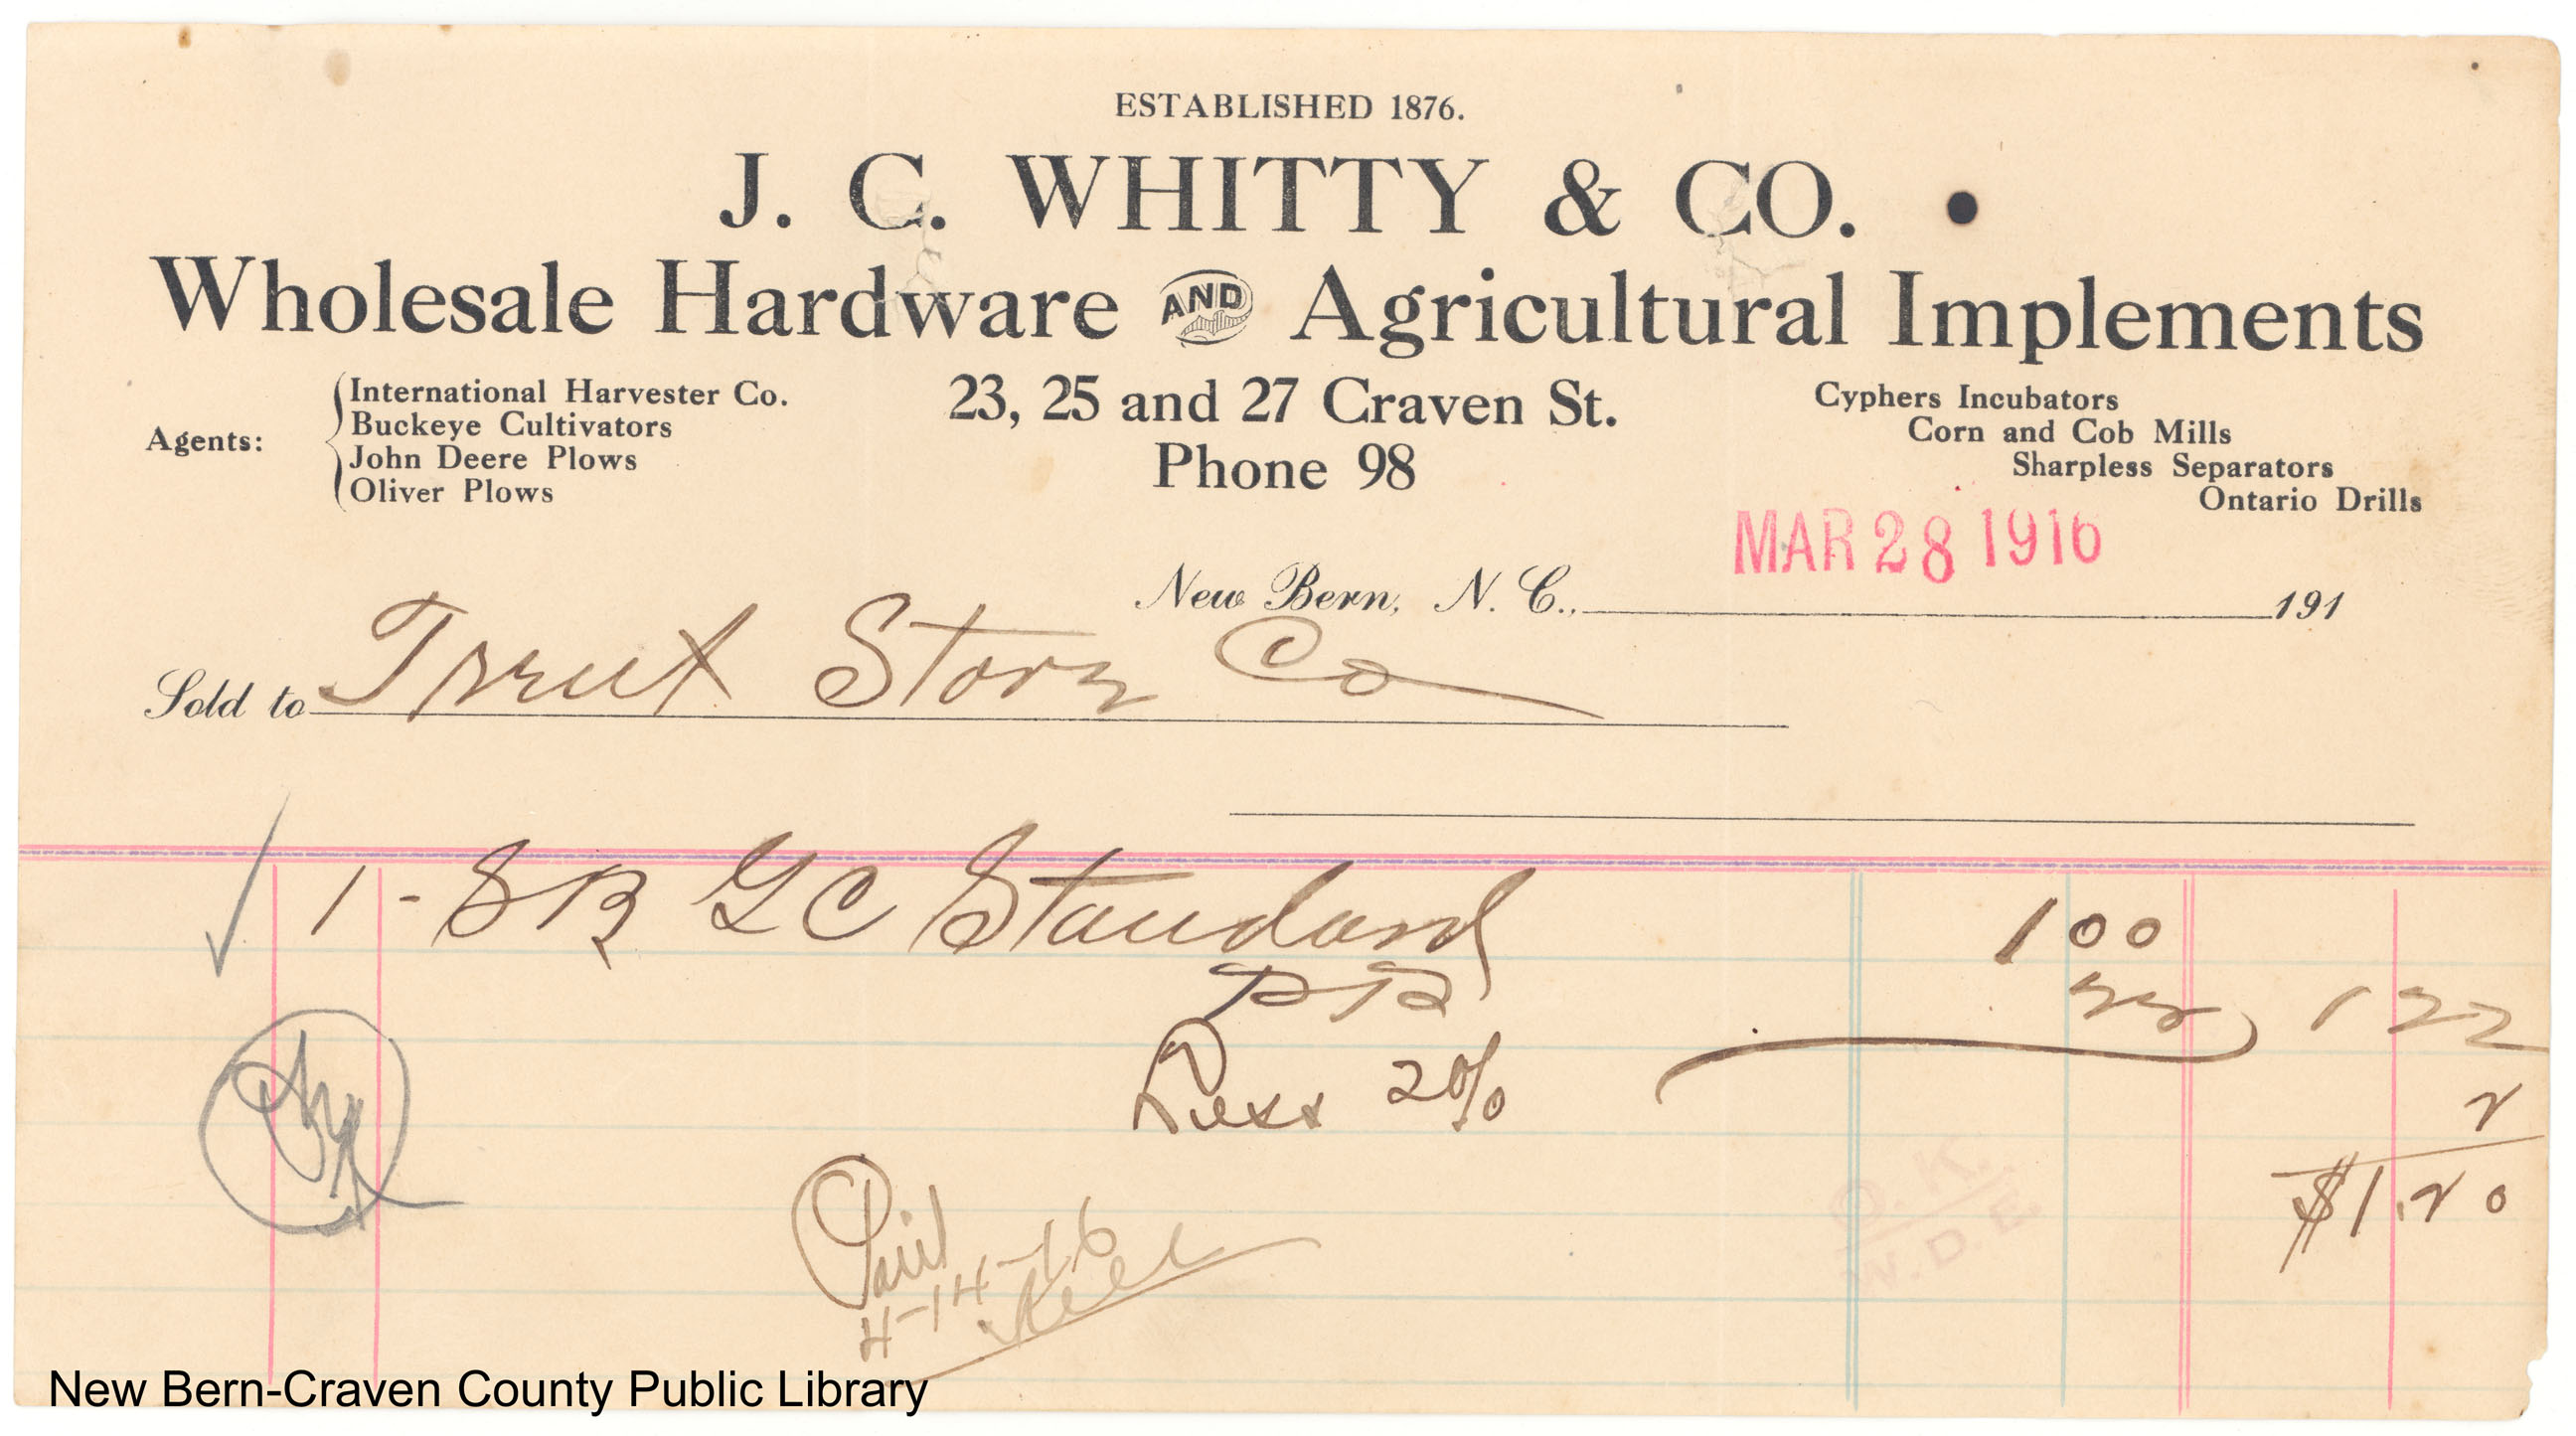 ESTABLISHED 1876.
J. C. WHITTY & CO.
Wholesale Hardware AND Agricultural Implements
Agents:
International Harvester Co.
Buckeye Cultivators
John Deere Plows
Oliver Plows
23, 25 and 27 Craven St.
Phone 98
Cyphers Incubators
Corn and Cob Mills
Sharpless Separators
Ontario Drills
MAR 28 1916
New Bern, N. C., 191
Sold to Truitt Store Co
1 - SB GC Standard 1 00
22 1 22
Less 2% 2
$1.20
Paid
4-14-16
O. K.
W. D. E.
New Bern-Craven County Public Library